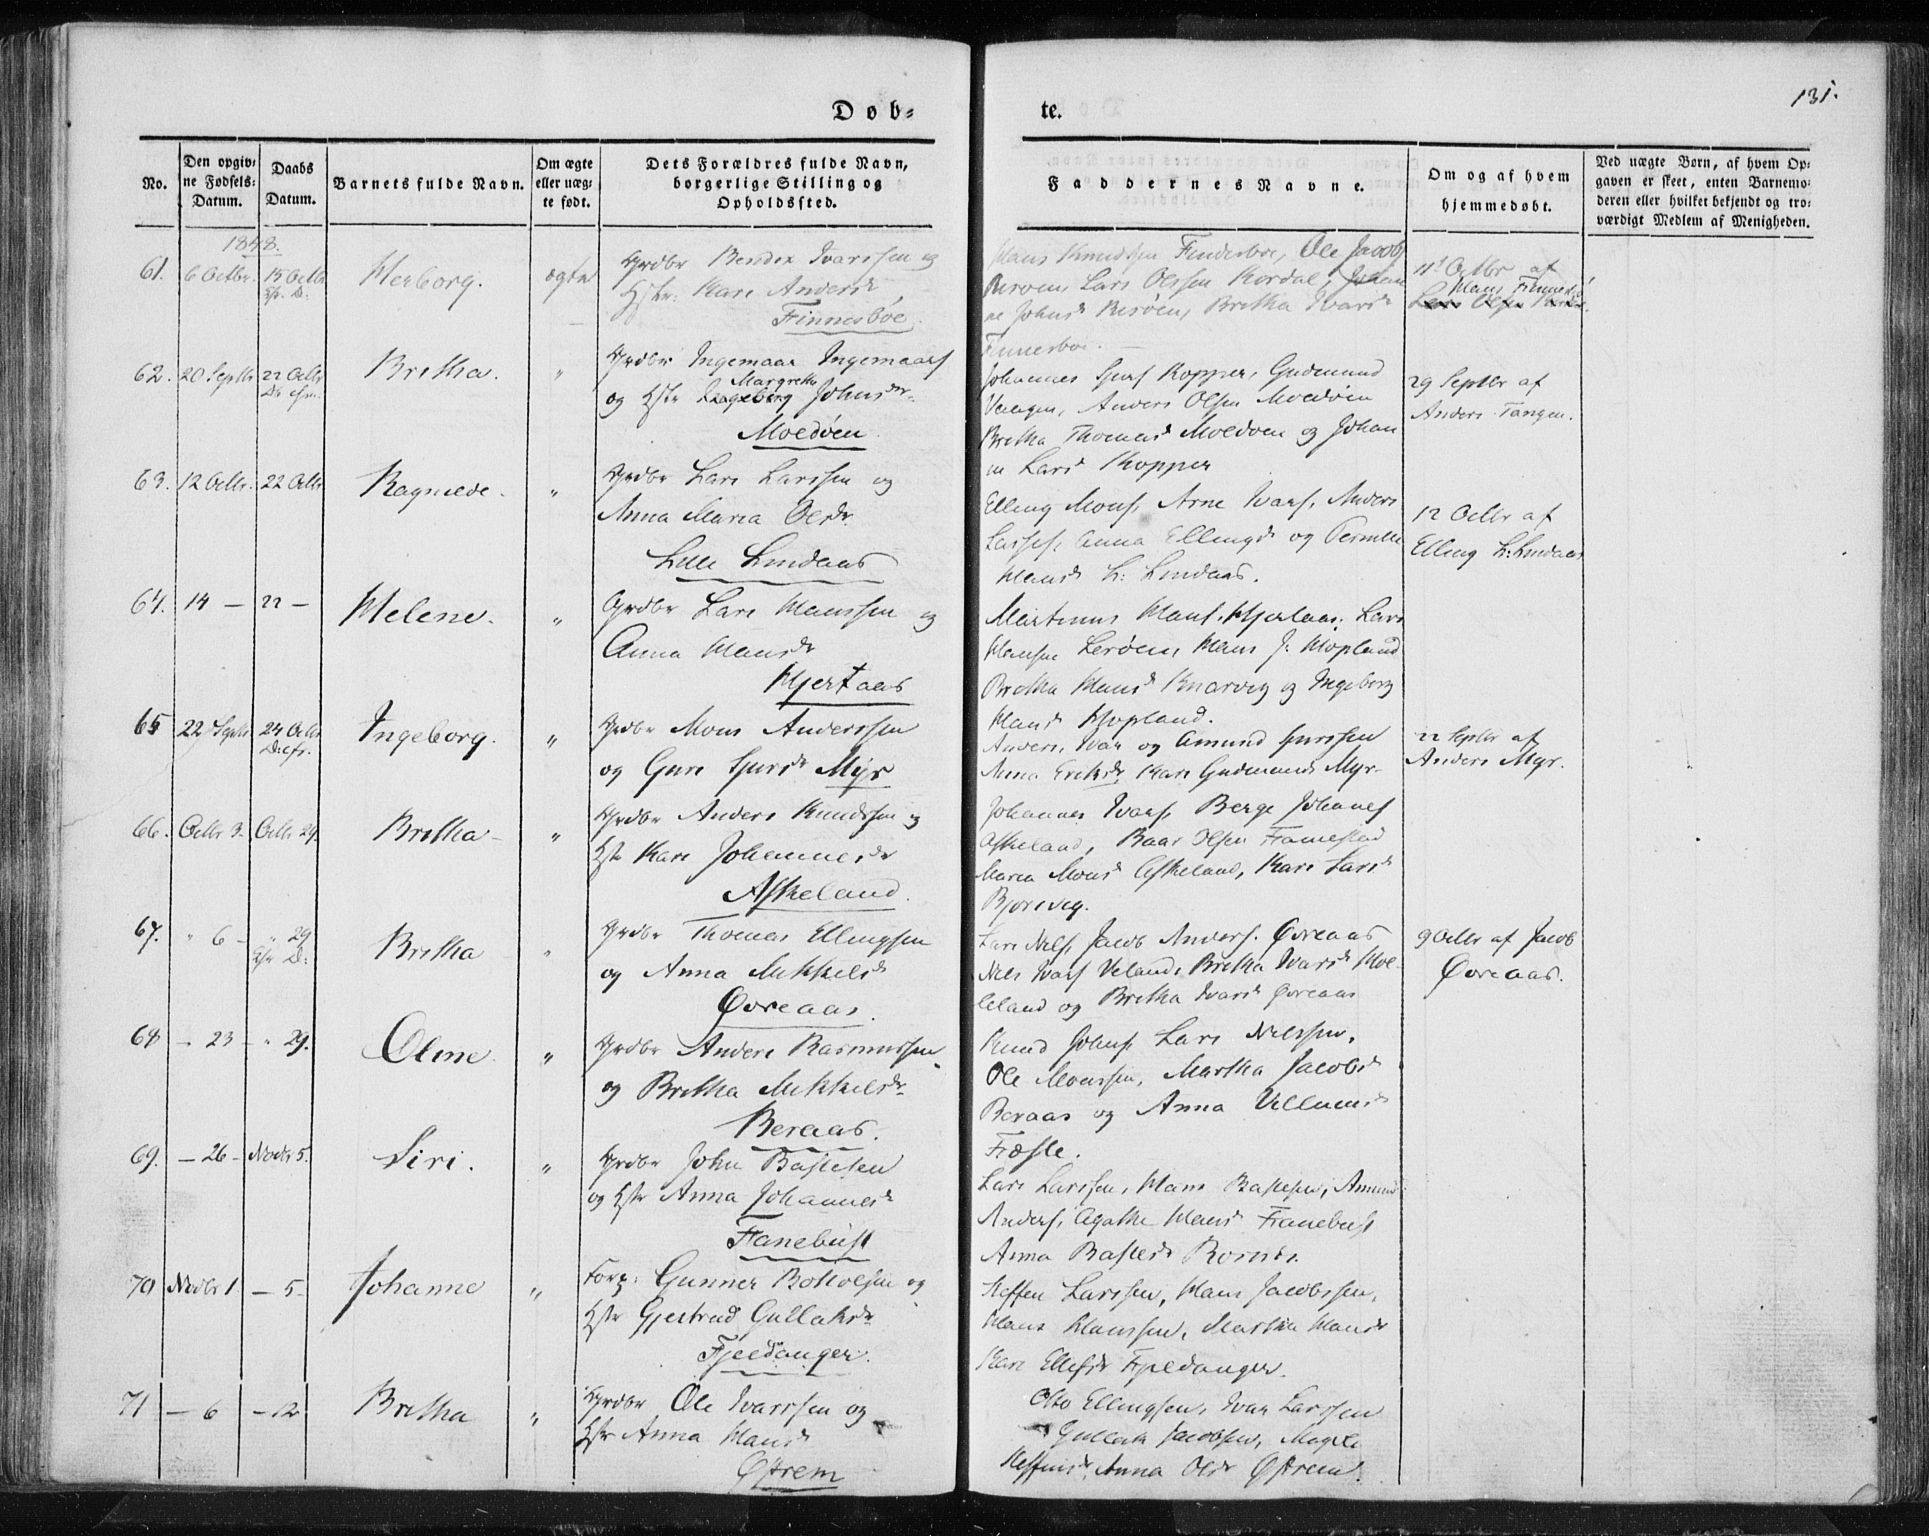 Døb-
te.
131.
No.
Den opgiv-
ne Fødsels-
Datum.
Daabs
Datum.
Barnets fulde Navn.
Om ægte
eller uæg-
te født.
Dets Forældres fulde Navn,
borgerlige Stilling og
Opholdssted.
Faddernes Navne.
Om og af hvem
hjemmedøbt.
Ved uægte Børn, af hvem Op-
gaven er skeet, enten Barnemo-
deren eller hvilket bekjendt og tro-
værdigt Medlem af Menigheden.
1848.
61. 6 Octbr. 15 Octbr Herborg. ægte Grdbr Bendix Ivarssen og
Hstr: Kari Andersd
Finnesbøe.
Hans Knudsen Finnesboe, Ole Jacobs
Lars Olssen Kordal, Johan
ne Johnsd Berøen, Bretha Ivarsd
Finnesboe.
11 Octbr af
Hans Finnesb
62. 20 Septbr 22 Octbr Bretha. " Grdbr Ingemaar Ingemaars
og Hstr Margretha Johnsdr.
Moldøen.
Johannes Sjurs Kopper, Gudmund
Anders Olsen Moldøen
Bretha Thomasd Moldøen og Johan
ne Larsd Kopper
29 Septbr af
Anders Tangen.
63. 12 Octbr. 22 Octbr Ragnilde. " Grdbr Lars Larssen og
Anna Maria Olsdr.
Lille Lindaas
Elling Mons, Arne Ivars, Anders
Lasses, Anna Ellingsd og Pernille
Hansd L: Lindaas.
12 Octbr af
Elling L: Lindaas
64. 14 — 22 — Helene. " Grdbr Lars Hanssen og
Anna Hansd
Hjertaas
Martinus Hans. Hjertaas, Lars
Hansen Lerøen, Hans J: Hopland
Bretha Hansd Knarvig og Ingeborg
Hansd Hopland.
65 22 Septbr 24 Octbr Ingeborg. " Grdbr Mons Anderssen
og Guri Sjursd Myr
Anders, Ivar og Amund Sjurssen
Anna Eriksd, Kari Gudmundsd Myr.
22 Septbr af
Anders Myr.
66. Octbr 3. Octbr 29. Bretha " Grdbr Anders Knudssen og
Hstr Kari Johannesdr
Askeland.
Johannes Ivars, Berge Johannes
Askeland, Baar Olsen Framestad
Maria Monsd Askeland, Kari Larsd
Bjorevig.
67. " 6 — " 29 Bretha " Grdbr Thomas Ellingsen
og Anna Mikkelsd
Øvreaas.
Lars Nils, Jacob Anders. Øvreaas
Nils Ivars Veland, Bretha Ivarsd Mol-
leland og Bretha Ivarsd Øvreaas
9 Octbr af Jacob
Øvreaas.
68 — 23 — " 29. Oline. " Grdbr Anders Rasmussen
og Bretha Mikkelsdr
Beraas.
Knud Johns, Lars Nilssen,
Ole Monssen, Martha Jacobsd
Beraas og Anna Villumsd
Fræste.
69. — 26 — Novbr 5. Siri. " Grdbr John Bastesen
og Hstr Anna Johannesd
Fanebust
Lars Larssen, Hans Bastesen, Amund
Anders, Agathe Hansd Fanebust
Anna Bastesdr
70 Novbr 1. — 5. Johanne " Forp: Gunner Botholsen og
Hstr Gjertrud Gullaksdr
Fjeldanger.
Steffen Larssen, Hans Jacobssen,
Hans Hanssen, Martha Hansdr
Kari Fjeldanger.
71 — 6 — 12 Bretha " Grdbr Ole Ivarssen og
Hstr Anna Hansd
Østrem
Otto Ellingsen, Ivar Larssen
Gullak Jacobsen, Magle
Steffensd, Anna Olsdr Østrem.